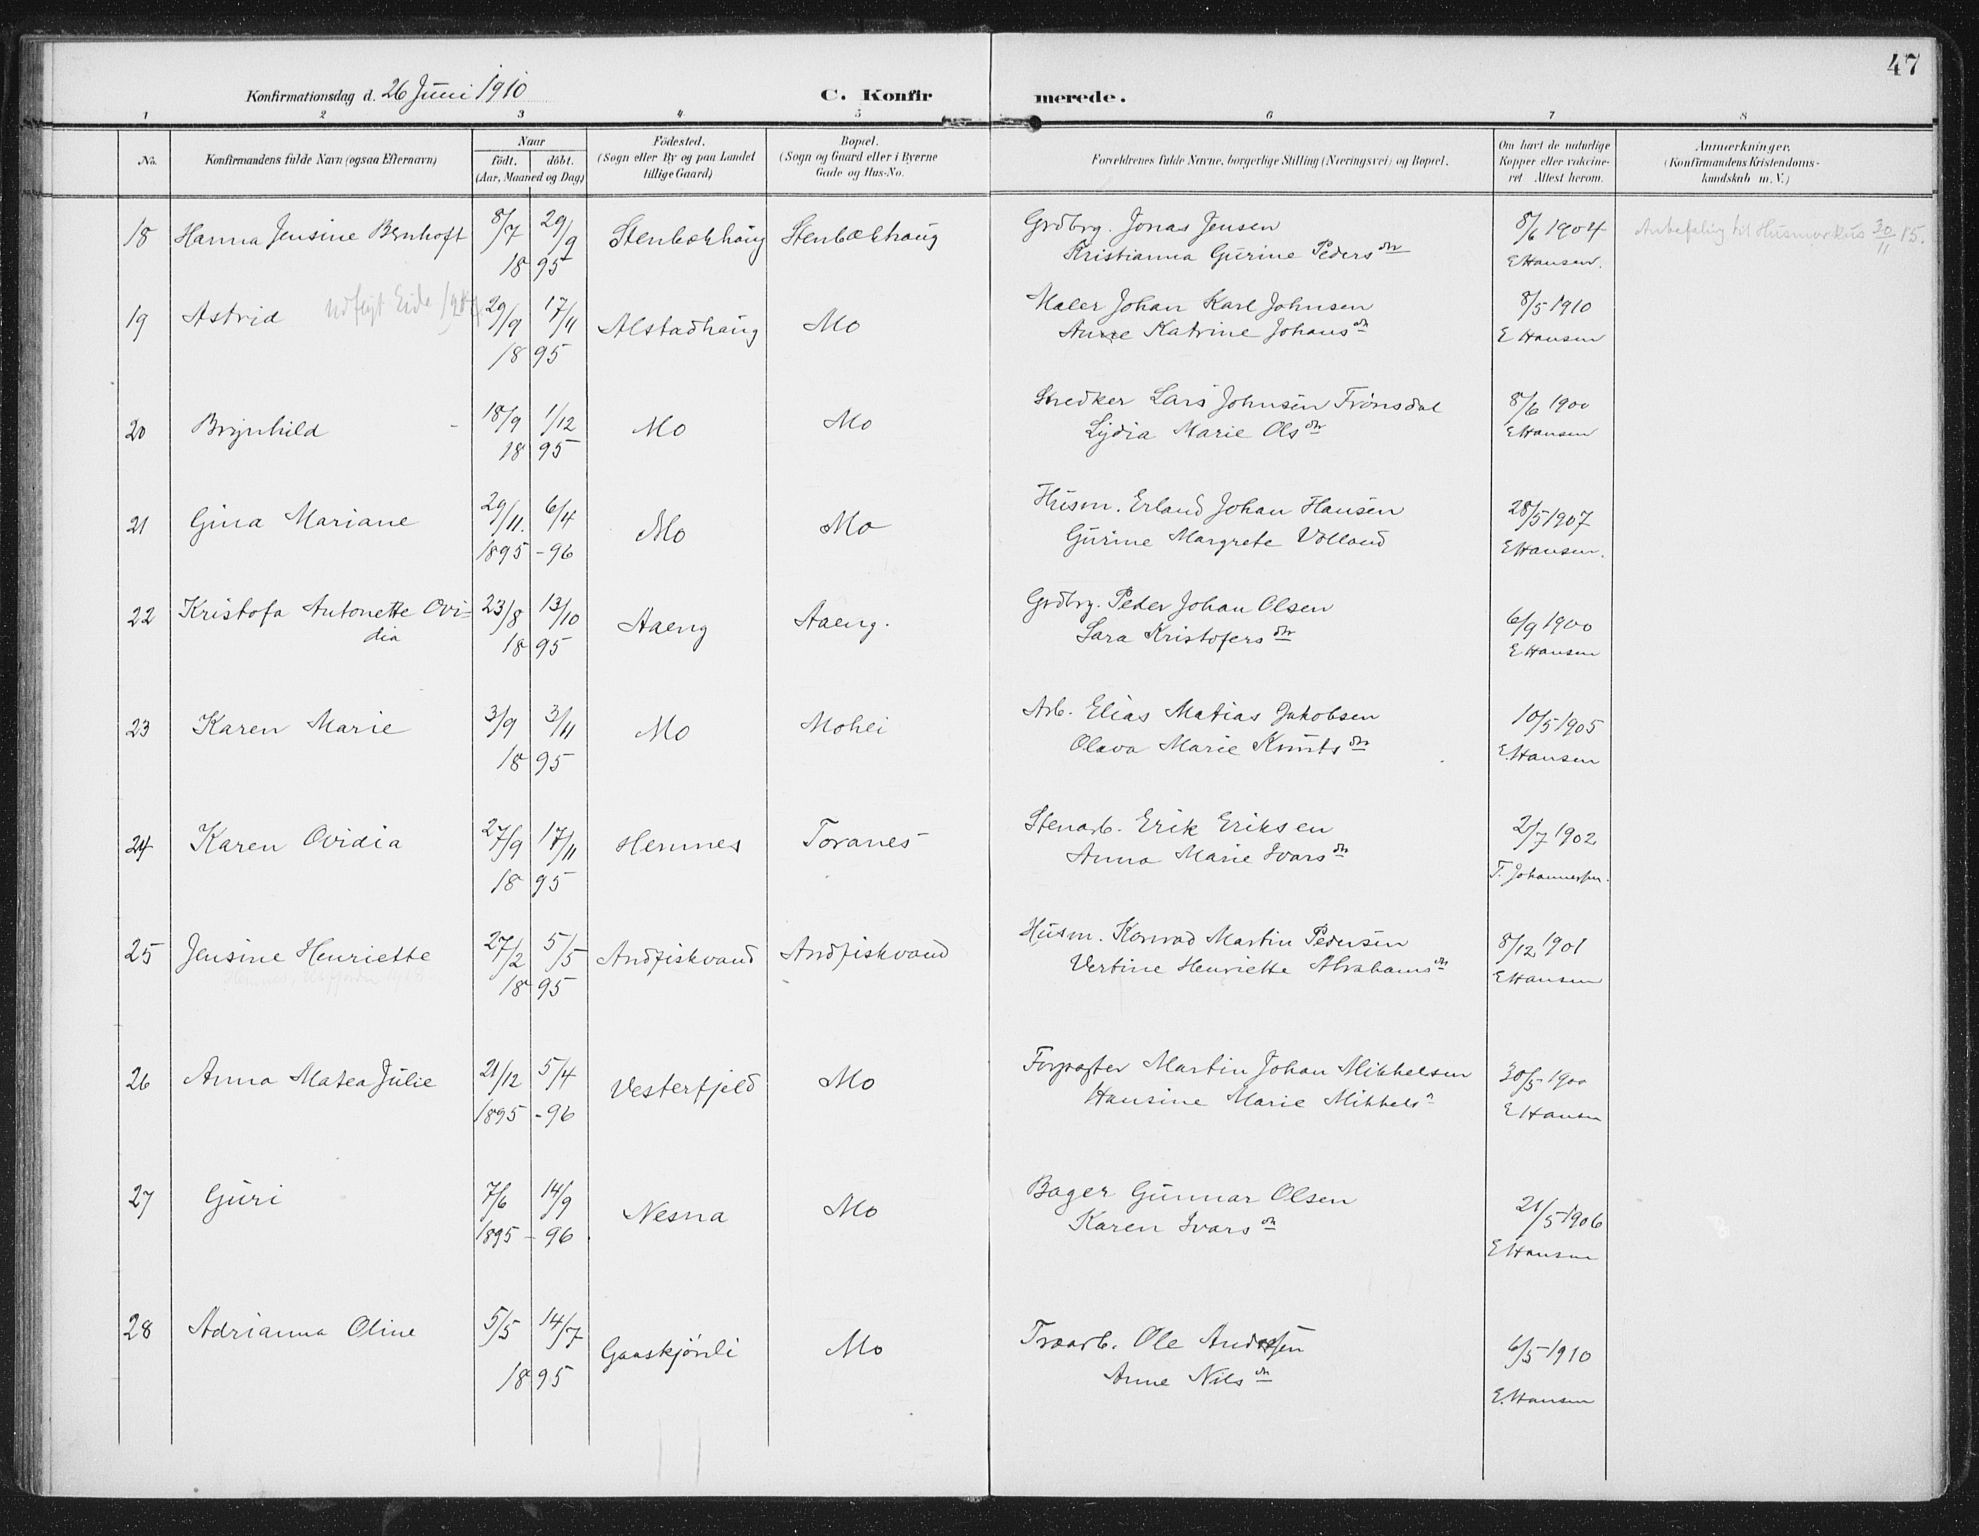 47
Konfirmationsdag d. 26 Juni 1910
C. Konfirmerede.
1 2 3 4 5 6 7 8
No. | Konfirmandens fulde Navn (ogsaa Efternavn) | Naar født. døbt. (Aar, Maaned og Dag) | Fødested. (Sogn eller By og paa Landet tillige Gaard) | Bopæl. (Sogn og Gaard eller i Byerne Gade og Hus-No. | Forældrenes fulde Navne, borgerlige Stilling (Næringsvei) og Bopæl. | Om havt de naturlige Kopper eller vaccineret Attest herom. | Anmærkninger. (Konfirmandens Kristendomskundskab m. V.)
18 Hanna Jensine Bernhoft 8/7 29/9 Stenbækhaug Stenbækhaug Grdbrg. Jonas Jensen 8/6 1904 Anbefaling til Husmorkus 30/11 15.
18 95 Kristianna Gurine Pedersdtr EHansen.
19 Astrid Udflyt Eide 29/9 17/11 Alstadhaug Mo Maler Johan Karl Johnsen 8/5 1910
18 95 Anne Katrine Johansdtr E Hansen
20 Brynhild 18/9 1/12 Mo Mo Snedker Lars Johnsen Trønsdal 8/6 1900
18 95 Lydia Marie Olsdtr EHansen
21 Gina Mariane 29/11. 6/4 Mo Mo Husm. Erland Johan Hansen 28/5 1907
1895 - 96 Gurine Margrete Volland EHansen.
22 Kristofa Antonette Ovi- 23/8 13/10 Aaeng Aaeng. Grdbrg. Peder Johan Olsen 6/9 1900
dia 18 95 Sara Kristofersdtr E Hansen
23 Karen Marie 3/9 3/11 Mo Mohei Arb. Elias Matias Jakobsen 10/5 1905
18 95 Olava Marie Knutsdtr E.Hansen
24 Karen Ovidia 27/9 17/11 Hemnes Toranes Stenarb. Erik Eriksen 2/7 1902
18 95 Anna Marie Ivarsdtr T. Johannessen.
25 Jensine Henriette 27/2 5/5 Andfiskvand Andfiskvand Husm. Konrad Martin Pedersen 8/12 1901
Hemnes, 18 95 Vertine Henriette Abrahamsdtr EHansen
26 Anna Matea Julie 21/12 5/4 Vesterfjeld Mo Forpagter Martin Johan Mikkelsen 30/5 1900
1895 - 96 Hansine Marie Mikkels EHansen
27 Guri 7/6 14/9 Nesna Mo Bager Gunnar Olsen 21/5 1906
1895 - 96 Karen Ivarsdtr EHansen
28 Adrianna Oline 5/5 14/7 Gaaskjønli Mo Træarb. Ole Andersen 6/5 1910
18 95 Anne Nilsdtr E.Hansen